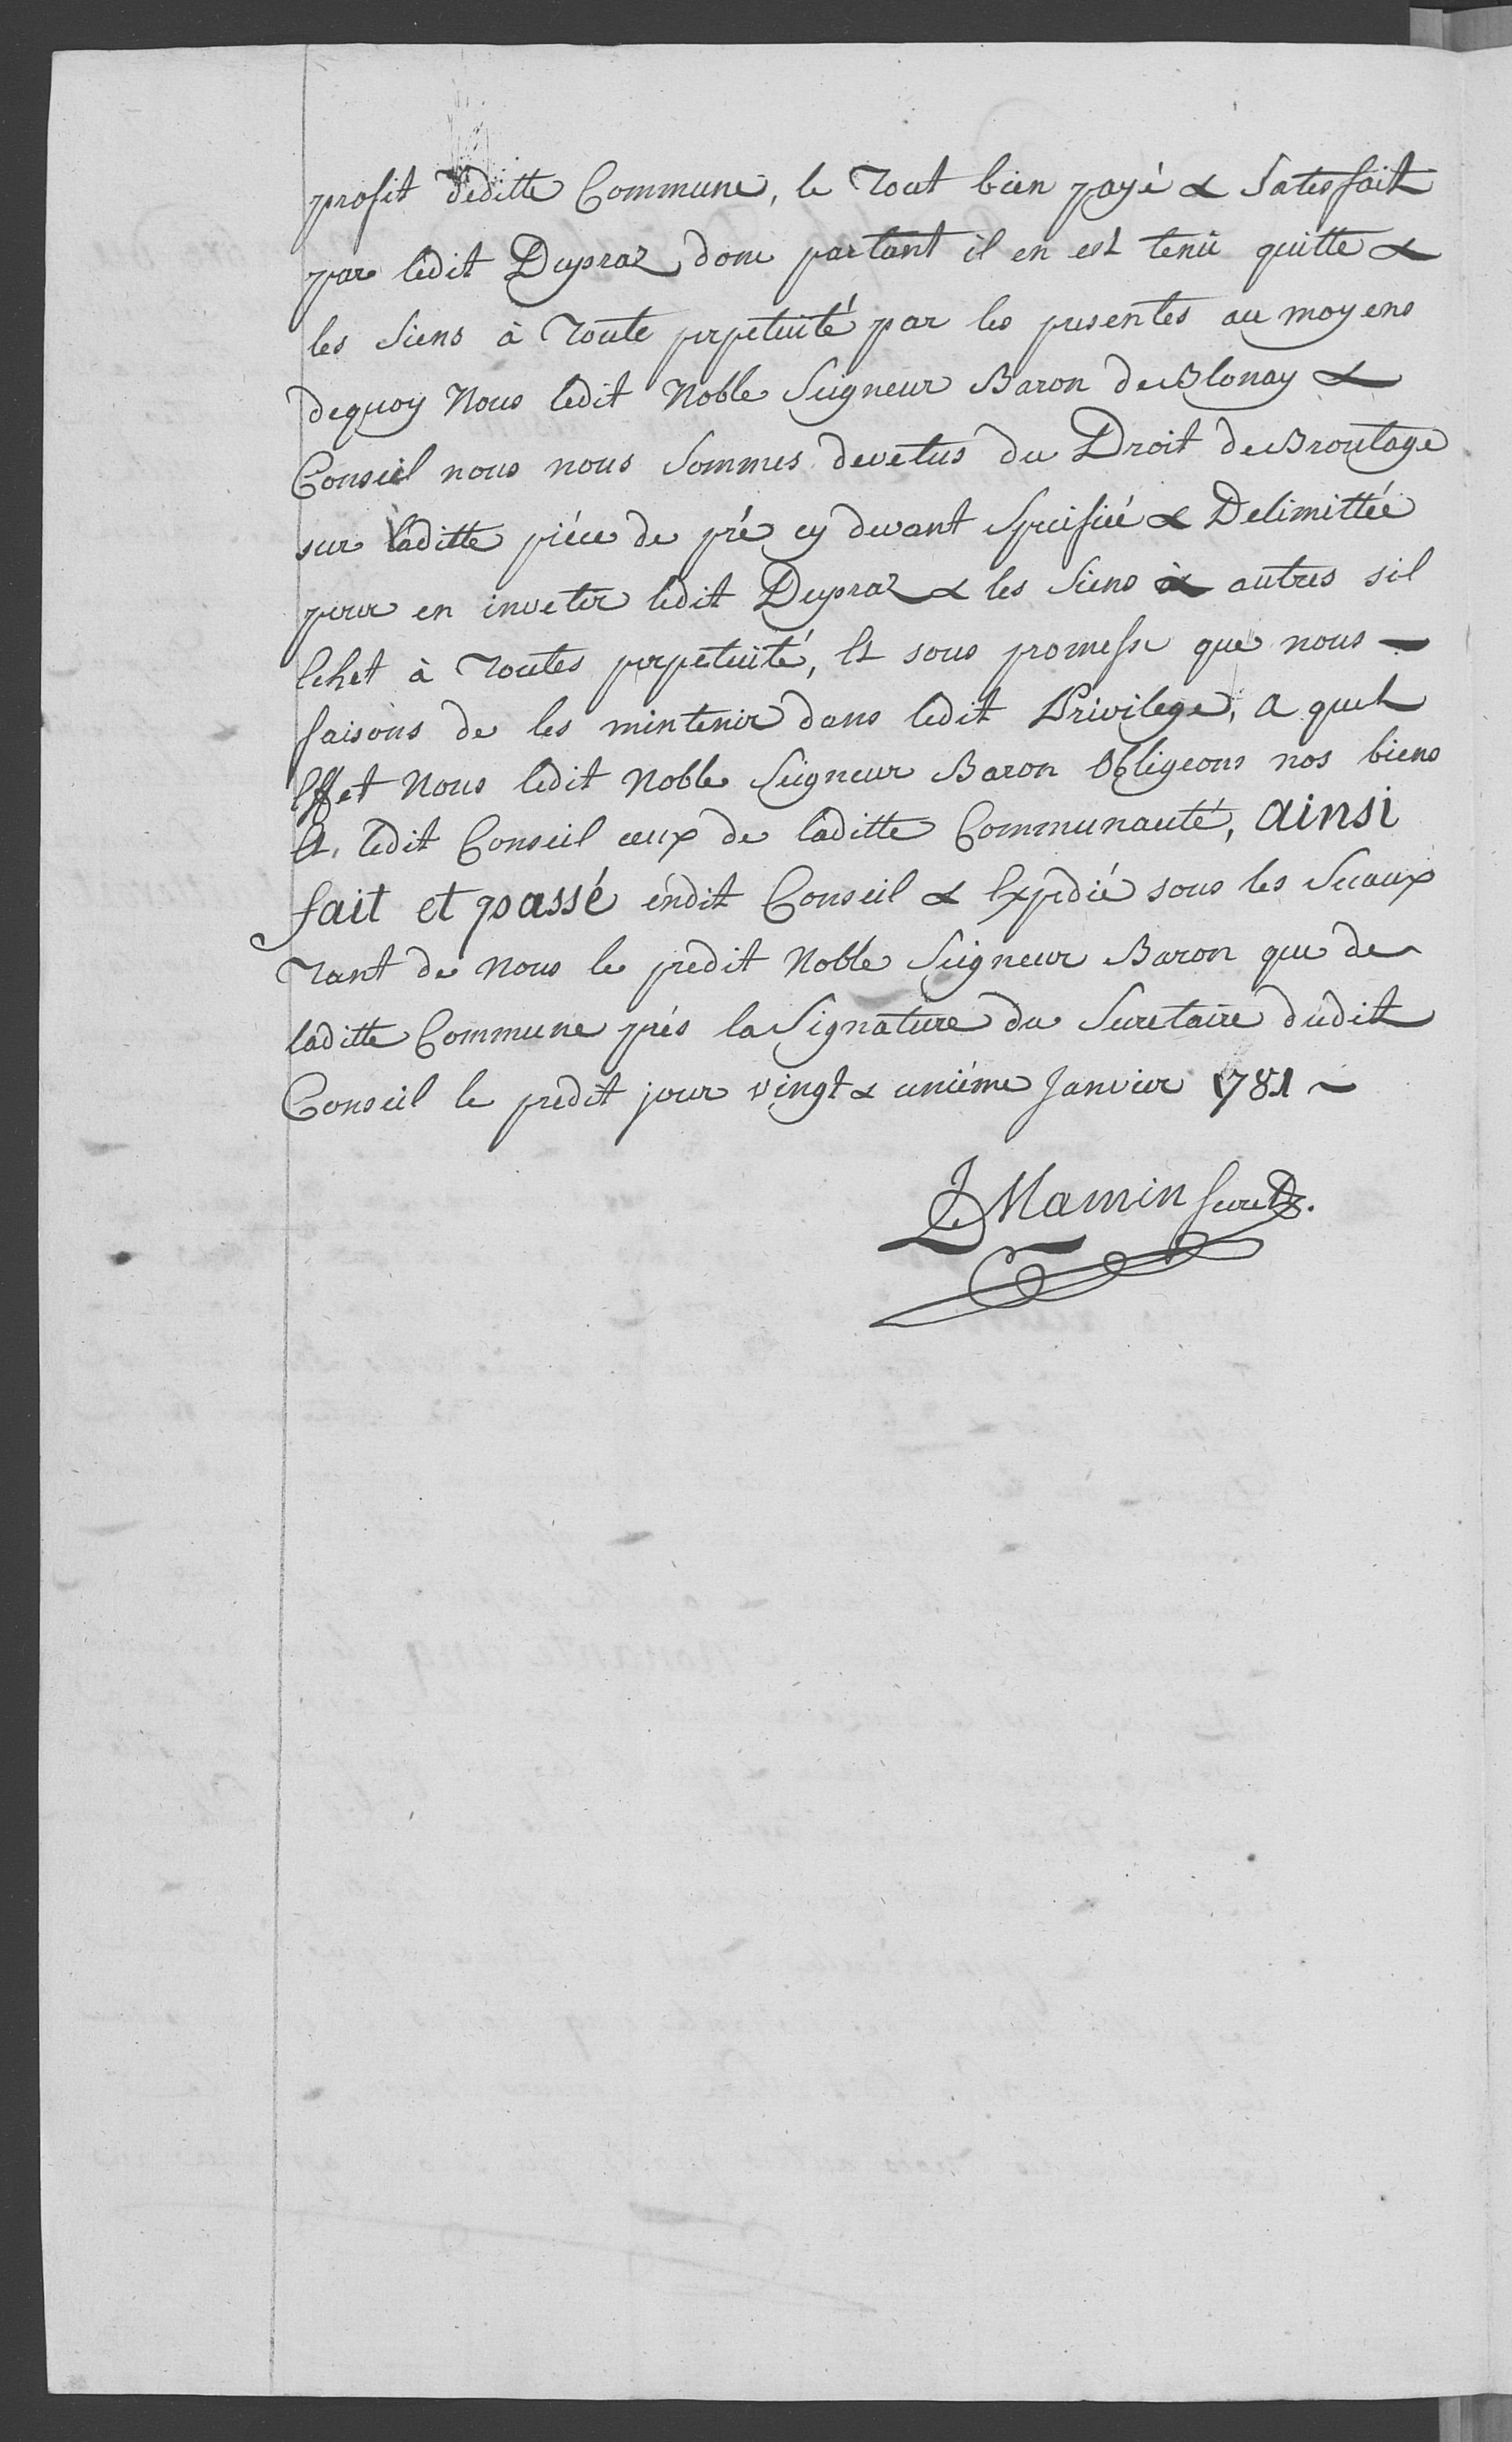 profit deditte Commune, le Tout bien payé & Satesfait
par ledit Dupraz, donc partant il en est tenû quitte &
les Siens à Toute perpetuité par les presentes au moyens
dequoy Nous ledit Noble Seigneur Baron de Blonay &
Conseil nous nous Sommes devetus du Droit de Broutage
sur laditte piéce de pré cy devant Specifiée & Delimittée
pour en invetir ledit Dupraz & les Siens & autres sil
Echet à Toutes perpetuité, Et sous promesse que nous –
faisons de les mintenir dans ledit Privilege, a quel
Effet Nous ledit Noble Seigneur Baron Obligeons nos biens
Et, ledit Conseil ceux de laditte Communauté, ainsi
fait et passé endit Conseil & Expedié sous les Sceaux
Tant de Nous le predit Noble Seigneur Baron que de
laditte Commune prés la Signature du Secretaire dudit
Conseil le predit jour vingt & uniéme Janvier 1781 ~
Mamin Secret.